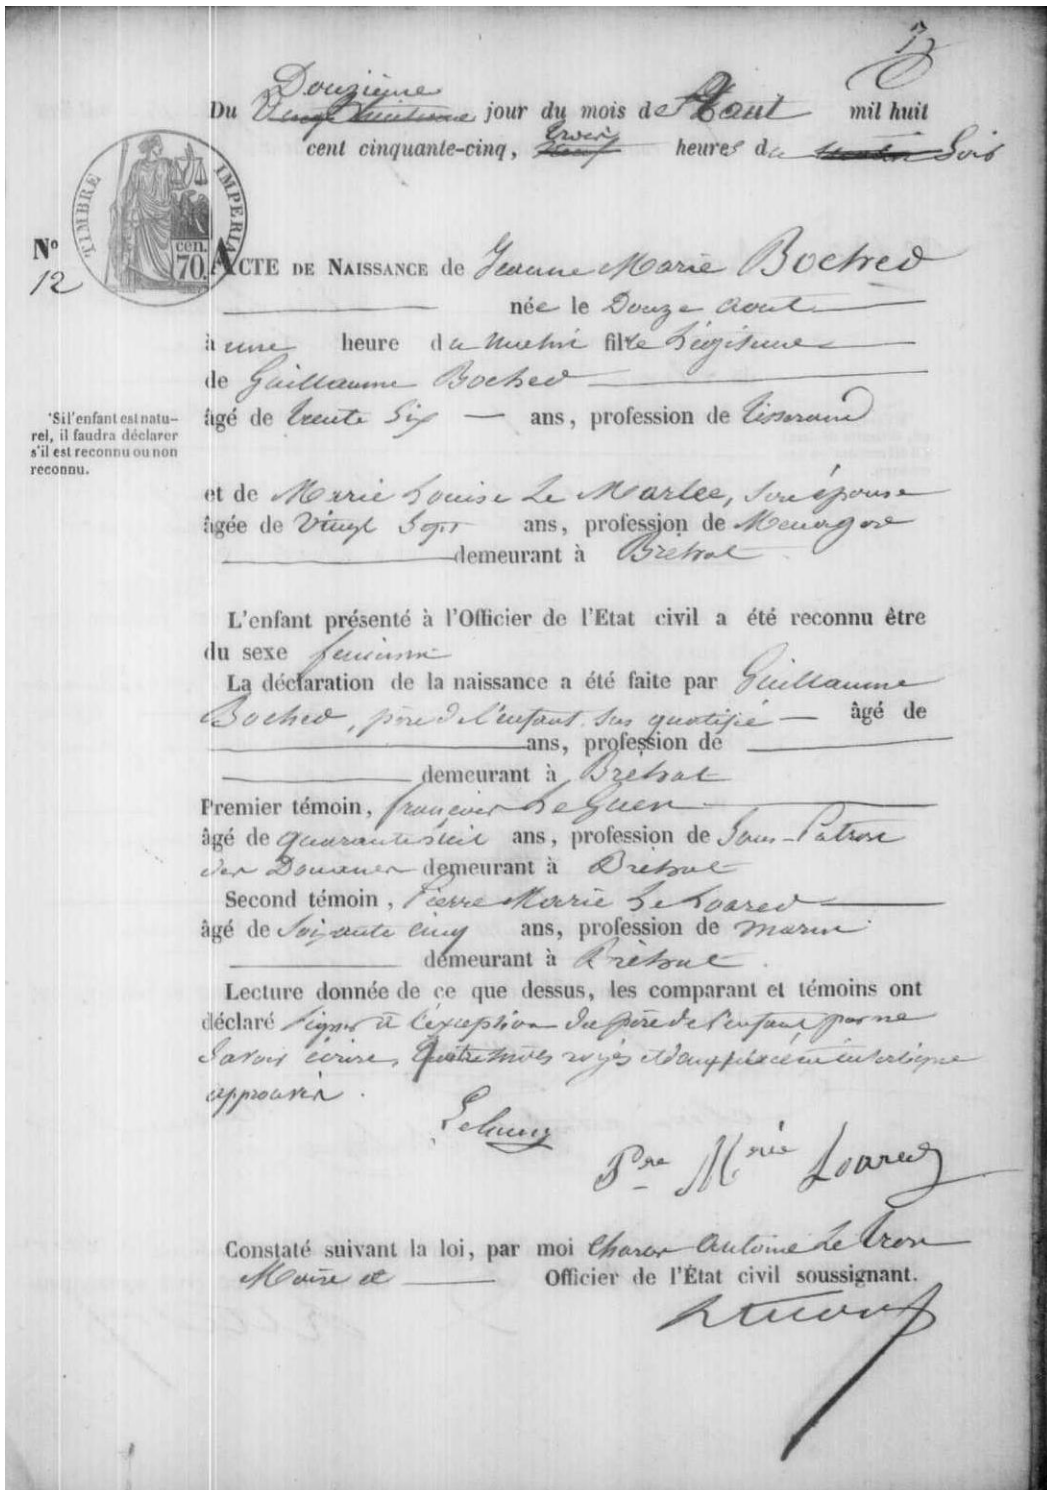 Douzième
Du Vingt huitième jour du mois de Aout mil huit
trois
cent cinquante-cinq, neuf heures du matin Soir
TIMBRE IMPERIAL
cen.
70
N°
12
ACTE DE NAISSANCE de Jeanne Marie Boched
née le Douze aout
à une heure du matin fille Légitime
de Guillaume Boched
'S'il l'enfant est natu-
rel, il faudra déclarer
s'il est reconnu ou non
reconnu.
âgé de trente Six ans, profession de tisserand
et de Marie Louise Le Marlec, Son épouse
âgée de Vingt Sept ans, profession de Menagère
demeurant à Bréhat
L'enfant présenté à l'Officier de l'Etat civil a été reconnu être
du sexe féminin
La déclaration de la naissance a été faite par Guillaume
Boched, père de l'enfant sus qualifié âgé de
ans, profession de
demeurant à Bréhat
Premier témoin, françois Le Guen
âgé de quarante huit ans, profession de Sous-Patron
des Douanes demeurant à Bréhat
Second témoin, Pierre Marie Le Loared
âgé de Soixante cinq ans, profession de marin
demeurant à Bréhat
Lecture donnée de ce que dessus, les comparant et témoins ont
déclaré signer à l'exception du père de l'enfant par ne
Savoir écrire, quatre mots rayés et interligne
approuvés
Leguen
Pre Mrie Loared
Constaté suivant la loi, par moi Charles Antoine Le Tron
Maire et Officier de l'État civil soussignant.